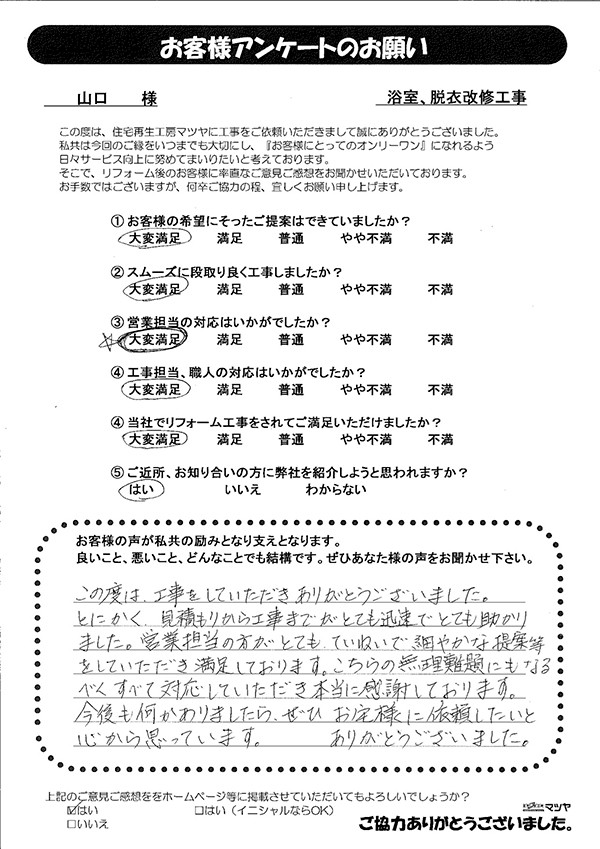 お客様アンケートのお願い
山口 様
浴室、脱衣改修工事
この度は、住宅再生工房マツヤに工事をご依頼いただきまして誠にありがとうございました。
私共は今回のご縁をいつまでも大切にし、『お客様にとってのオンリーワン』になれるよう
日々サービス向上に努めてまいりたいと考えております。
そこで、リフォーム後のお客様に率直なご意見ご感想をお聞かせいただいております。
お手数ではございますが、何卒ご協力の程、宜しくお願い申し上げます。
① お客様の希望にそったご提案はできていましたか？
大変満足 満足 普通 やや不満 不満
② スムーズに段取り良く工事しましたか？
大変満足 満足 普通 やや不満 不満
③ 営業担当の対応はいかがでしたか？
☆大変満足 満足 普通 やや不満 不満
④ 工事担当、職人の対応はいかがでしたか？
大変満足 満足 普通 やや不満 不満
④ 当社でリフォーム工事をされてご満足いただけましたか？
大変満足 満足 普通 やや不満 不満
⑤ ご近所、お知り合いの方に弊社を紹介しようと思われますか？
はい いいえ わからない
お客様の声が私共の励みとなり支えとなります。
良いこと、悪いこと、どんなことでも結構です。ぜひあなた様の声をお聞かせ下さい。
この度は、工事をしていただきありがとうございました。
とにかく、見積もりから工事までがとても迅速でとても助かり
ました。営業担当の方がとても、ていねいで細やかな提案等
をしていただき満足しております。こちらの無理難題にもなる
べくすべて対応していただき本当に感謝しております。
今後も何かありましたら、ぜひ お宅様に依頼したいと
心から思っています。 ありがとうございました。
上記のご意見ご感想ををホームページ等に掲載させていただいてもよろしいでしょうか？
☑はい □はい（イニシャルならOK）
□いいえ
マツヤ
ご協力ありがとうございました。